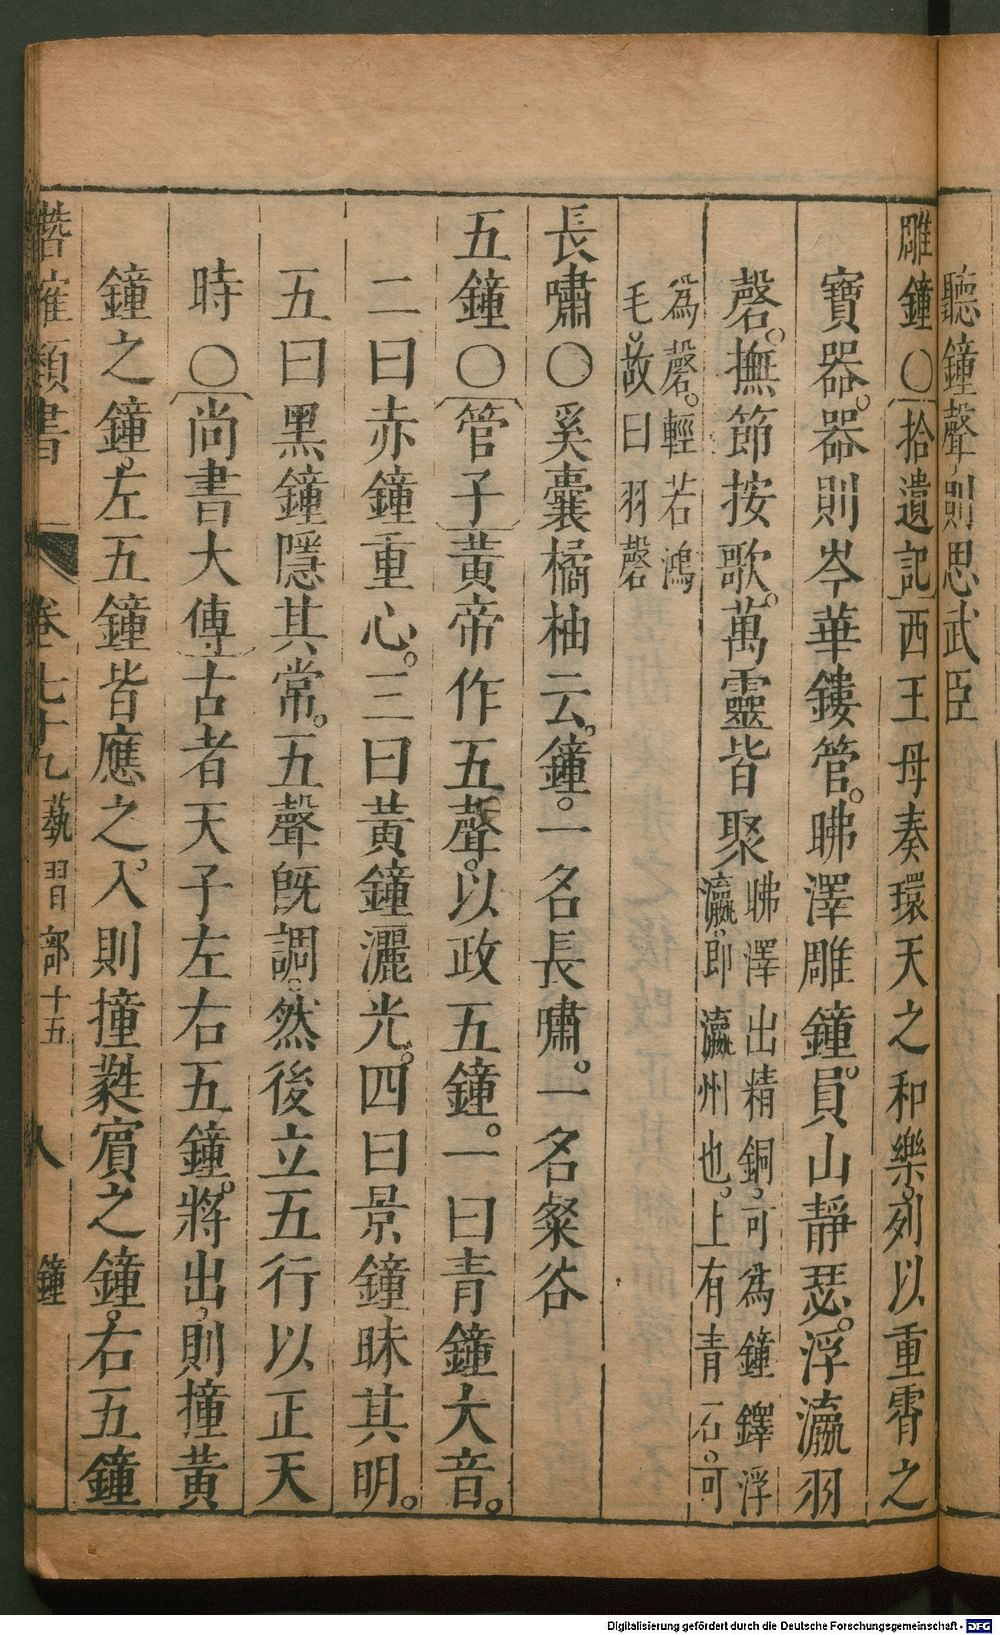 聽鐘聲則思武臣
雕鐘〇〔拾遺記〕西王母奏環天之和樂列以重霄之
寶器。器則岑華鏤管。昲澤雕鐘。員山靜瑟。浮瀛羽
磬。撫節按歌。萬靈皆聚
昲澤出精銅。可為鐘鐸浮
瀛即瀛州也。上有青石。可
為磬。輕若鴻
毛。故曰羽磬
長嘯〇奚囊橘柚云。鐘。一名長嘯。一名粲谷
五鐘〇〔管子〕黃帝作五聲。以政五鐘。一曰青鐘大音。
二曰赤鐘重心。三曰黃鐘灑光。四曰景鐘昧其明。
五曰黑鐘隱其常。五聲既調。然後立五行以正天
時〇〔尚書大傳〕古者天子左右五鐘。將出。則撞黃
鐘之鐘。左五鐘皆應之。入則撞蕤賓之鐘。右五鐘
類書 卷七十九 藝習部十五 八 鐘
Digitalisierung gefördert durch die Deutsche Forschungsgemeinschaft - DFG